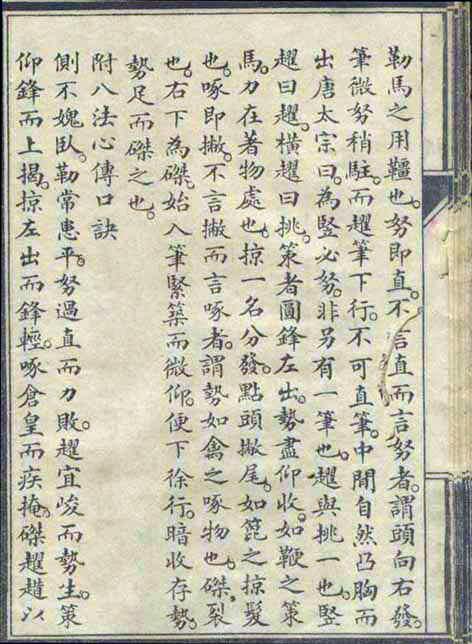 勒馬之用韁也。努即直。不言直而言努者。謂頭向右發。
筆微努稍駐。而趯筆下行。不可直筆。中間自然凸胸而
出唐太宗曰。為竪必努。非另有一筆也。趯與挑一也。竪
趯曰趯。橫趯曰挑。策者圓鋒左出。勢盡仰收。如鞭之策
馬。力在著物處也。掠一名分發。點頭撇尾。如篦之掠髮
也。啄即撇。不言撇而言啄者。謂勢如禽之啄物也。磔裂
也。右下為磔。始入筆緊築而微仰。便下徐行。暗收存勢。
勢足而磔之也。
附八法心傳口訣
側不媿臥。勒常患平。努過直而力敗。趯宜峻而勢生。策
仰鋒而上揭。掠左出而鋒輕。啄倉皇而疾掩。磔趯趞以